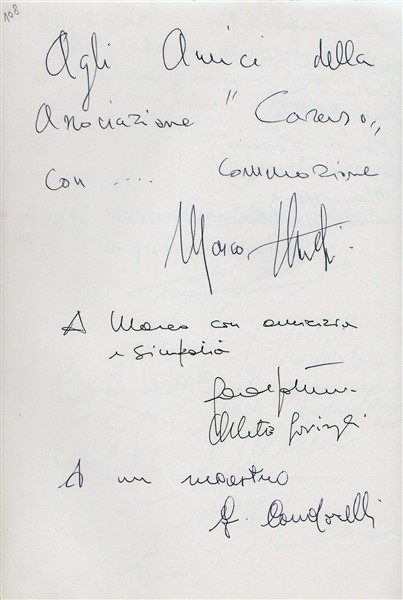 108
Agli Amici della
Associazione "Caruso"
con .... commozione
Marco
A Marco con amicizia
e simpatia
A un maestro
A. Condorelli